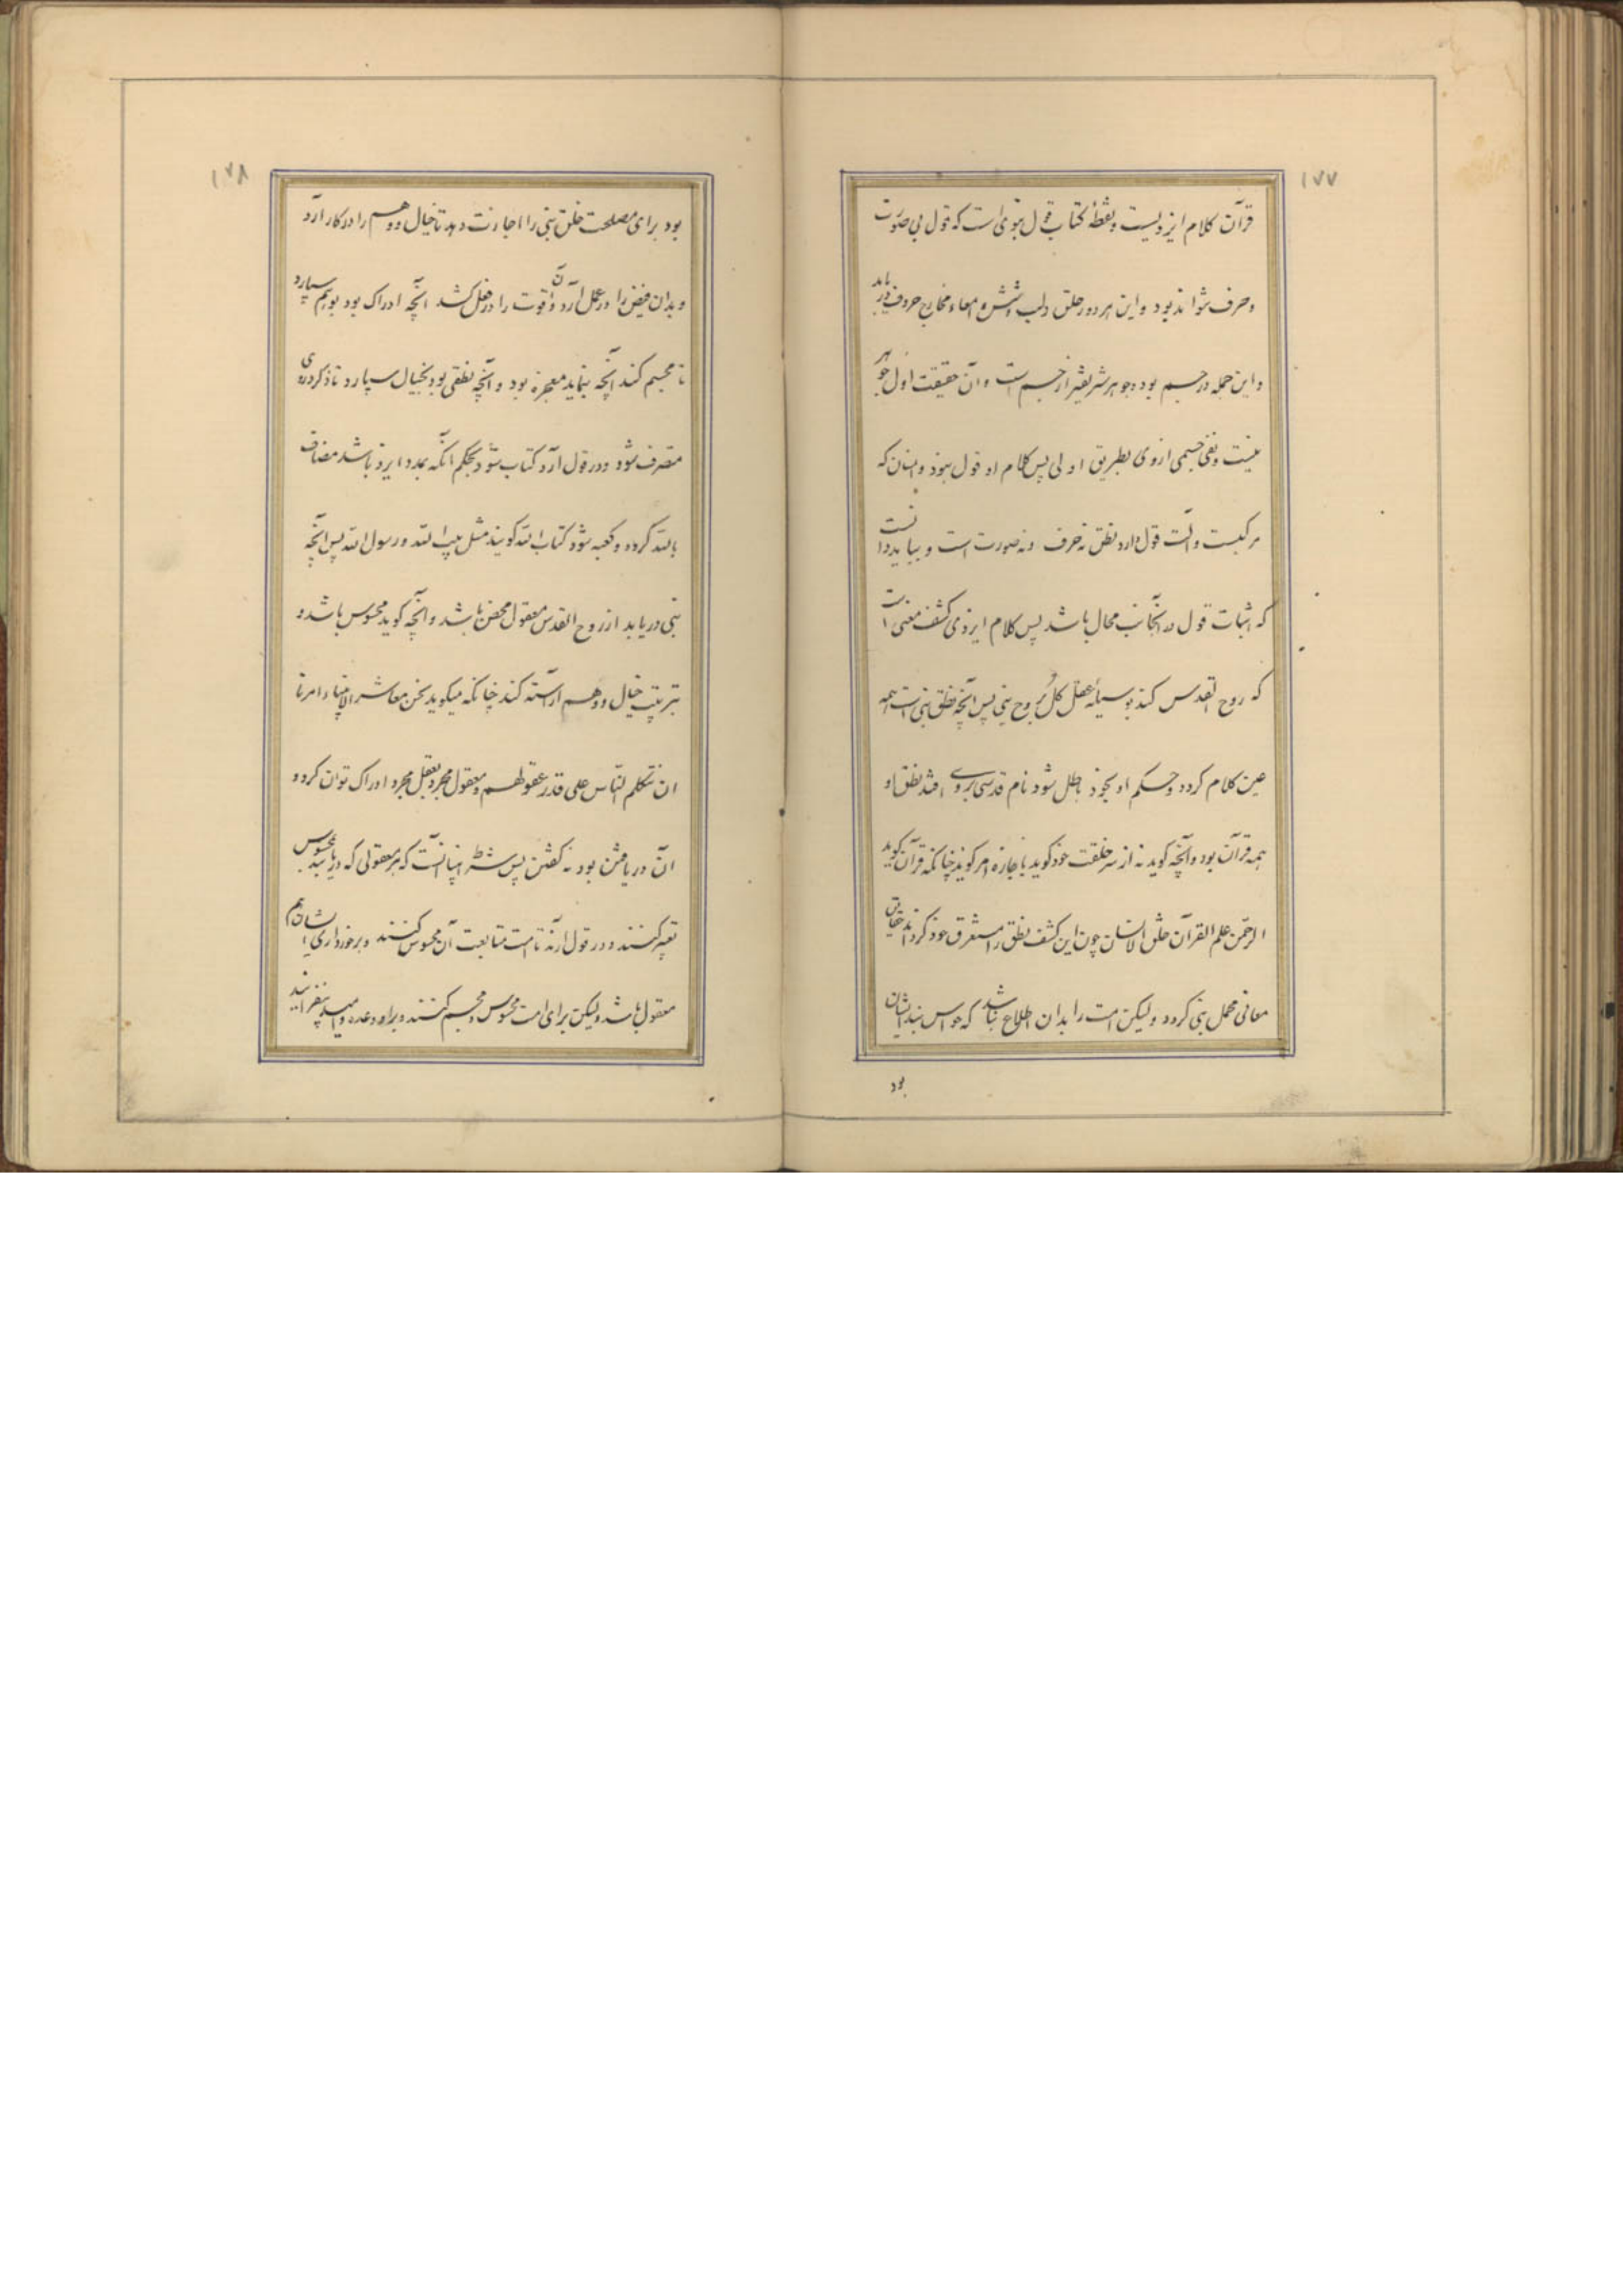 ۱۷۷
قرآن کلام ایزدیست و بقطهٔ کتاب قول نبوی است که قول بی صورت
و حرف نتواند بود و این هر دو در حلق و لب و شش و امعاء و مخارج حروف در یابد
و این جمله در جسم بود و جوهر شریفتر از جسم است و آن حقیقت اول جوهر
نیست و نفی جسمی از وی بطریق اولی پس کلام او قول نبود و انسان که
مرکبست و آلت قول دارد نطق نه حرف و نه صورت است و بباید دانست
که اثبات قول در آنجانب محال باشد پس کلام ایزدی کشف معنی است
که روح القدس کند بوسیلهٔ عقل کل بر روح نبی پس آنچه نطق نبی است همه
عین کلام گردد و حکم او بخود باطل شود نام قدسی بر وی افتد نطق او
همه قرآن بود و آنچه گوید نه از سر خلقت خود گوید باجازه امر گوید چنانکه قرآن گوید
الرحمن علم القرآن خلق الانسان چون این کشف نطق را مستغرق خود گرداند حقایق
معانی محمل نبی گردد ولیکن امت را بدان اطلاع نباشد که حواس بند ایشان
بود
۱۷۸
بود برای مصلحت خلق نبی را اجازت دهد تا خیال و وهم را در کار آرد
و بدان فیض را در عمل آرد و آن قوت را در فعل کشد آنچه ادراک بود بوهم سپارد
تا مجسم کند آنچه بنماید معجزه بود و آنچه نطقی بود بخیال سپارد تا ذکر در وی
متصرف شود و در قول آرد کتاب شود بحکم آنکه بمدد ایزد باشد مضاف
بالله گردد و کعبه شود کتاب الله گویند مثل بیت الله و رسول الله پس آنچه
نبی دریابد از روح القدس معقول محض باشد و آنچه گوید محسوس باشد و
بتربیت خیال و وهم آراسته کند چنانکه میگوید نحن معاشر الانبیاء امرنا
ان نتکلم الناس علی قدر عقولهم و معقول مجرد بعقل مجرد ادراک توان کرد و
آن دریافتن بود نه گفتن پس شرط انبیا آنست که هر معقولی که دریابند بمحسوس
تعبیر کنند و در قول آرند تا امت متابعت آن محسوس کنند و برخورداری ایشان هم
معقول باشد ولیکن برای امت محسوس و مجسم کنند و براه وعده و امید بیفزایند